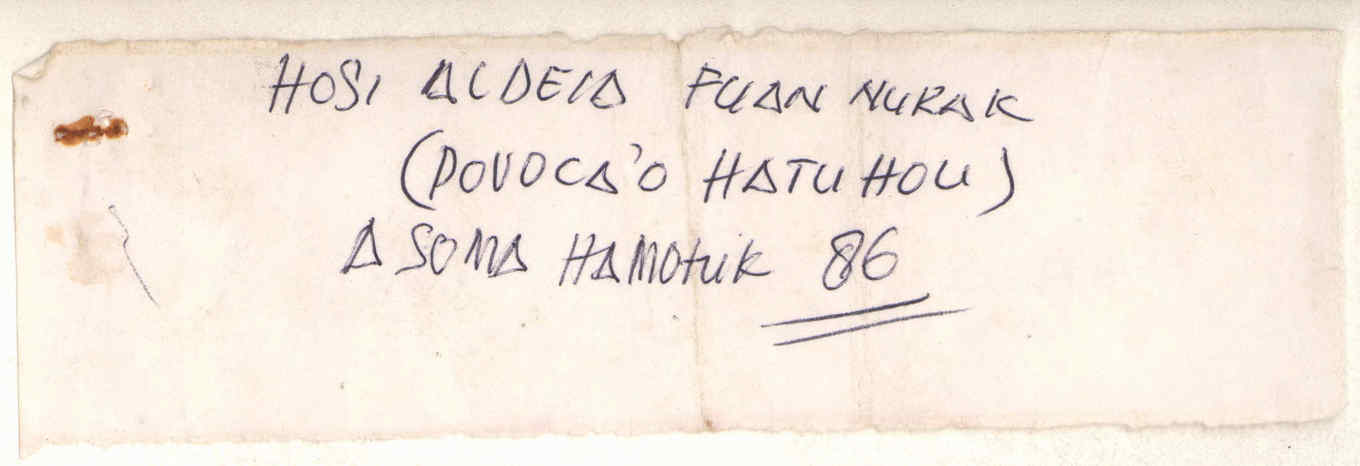 HOSI ALDEIA FUAN NURAK
(POVOCA'O HATU HOU)
A SOMA HAMOtuK 86